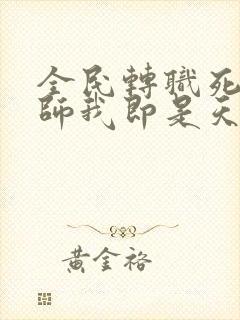 全民轉職死
師我即是天
黃金裕